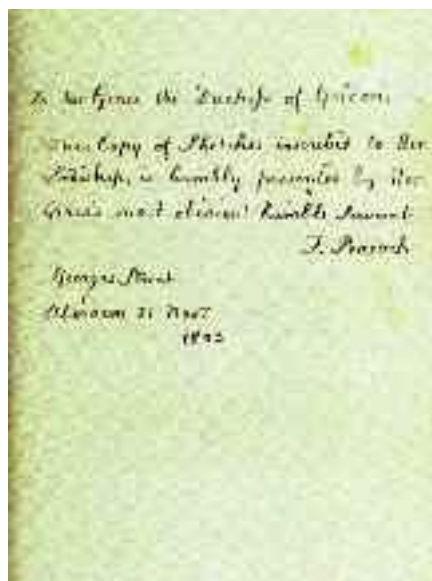 To her Grace the Duchess of
This Copy of Sketches inscribed to Her
Ladyship, is humbly presented by Her
Grace's most obedient humble Servant
F. Peacock
Georges Street